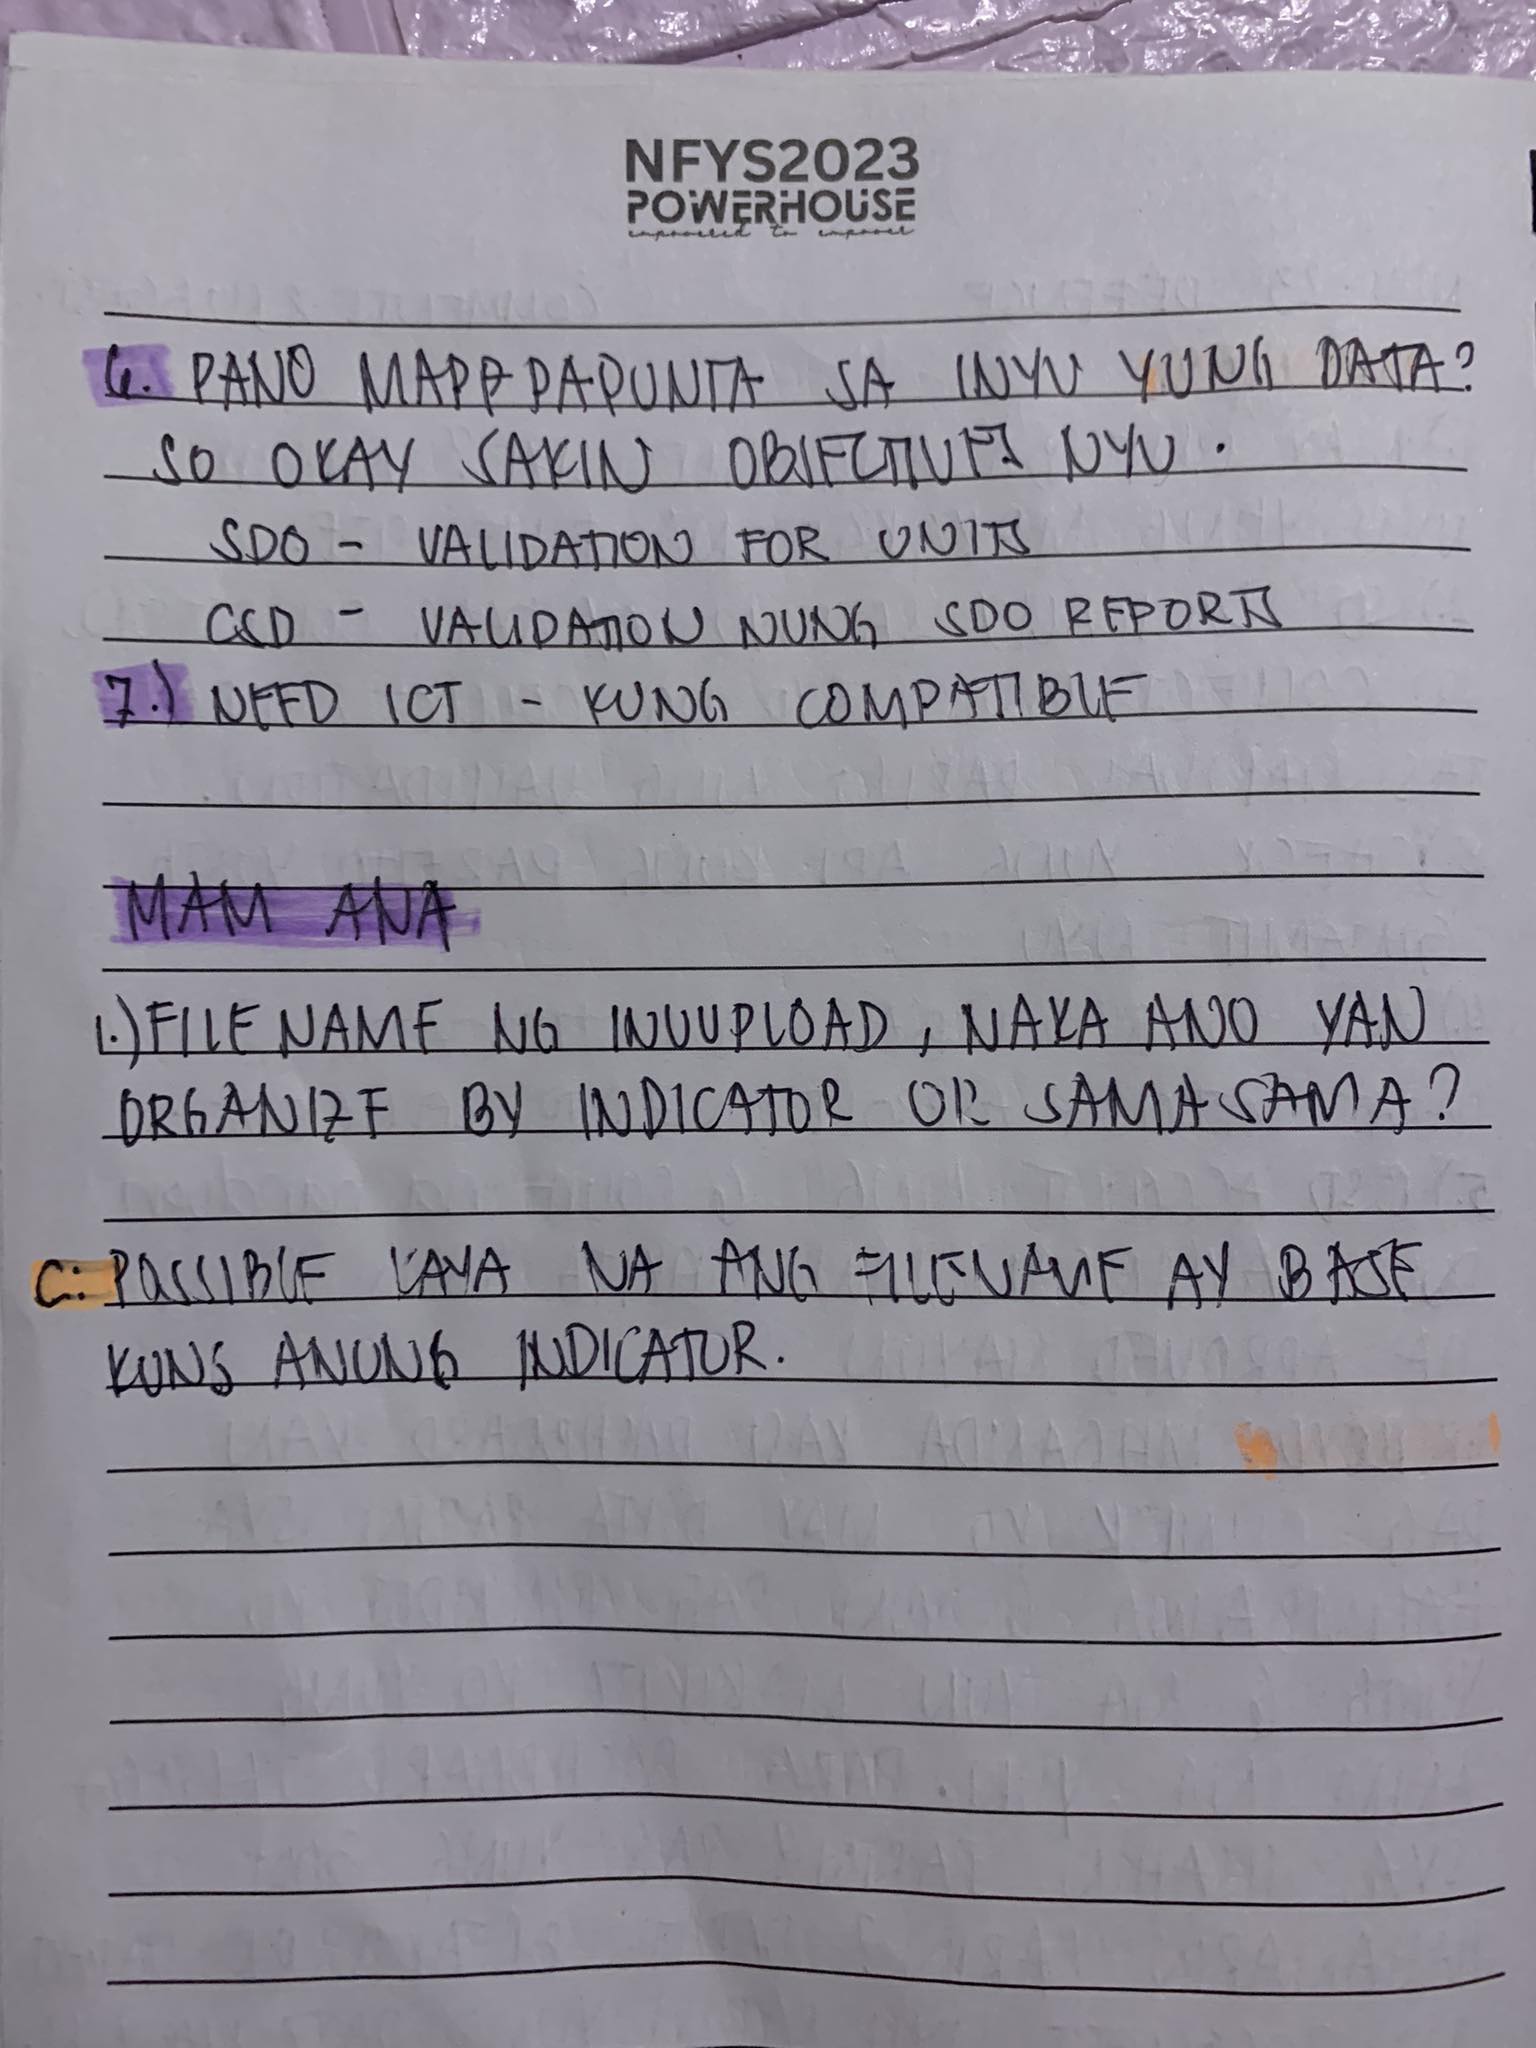 NFYS2023
POWERHOUSE
empowered to empower
6. PANO MAPPDAPUNTA SA INYU YUNG DATA?
SO OKAY SAKIN OBJECTIVES NYU.
SDO - VALIDATION FOR UNITS
CSD - VALIDATION NUNG SDO REPORTS
7.) NEED ICT - KUNG COMPATIBLE
MAM ANA
1.) FILE NAME NG INUUPLOAD, NAKA ANO YAN
ORGANIZE BY INDICATOR OR SAMASAMA?
C: POSSIBLE KAYA NA ANG FILENAME AY BASE
KUNG ANUNG INDICATOR.